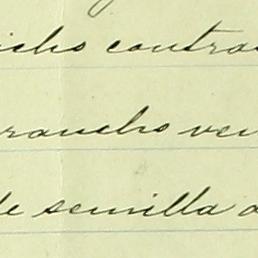 icho contra
rancho ven
de semilla a